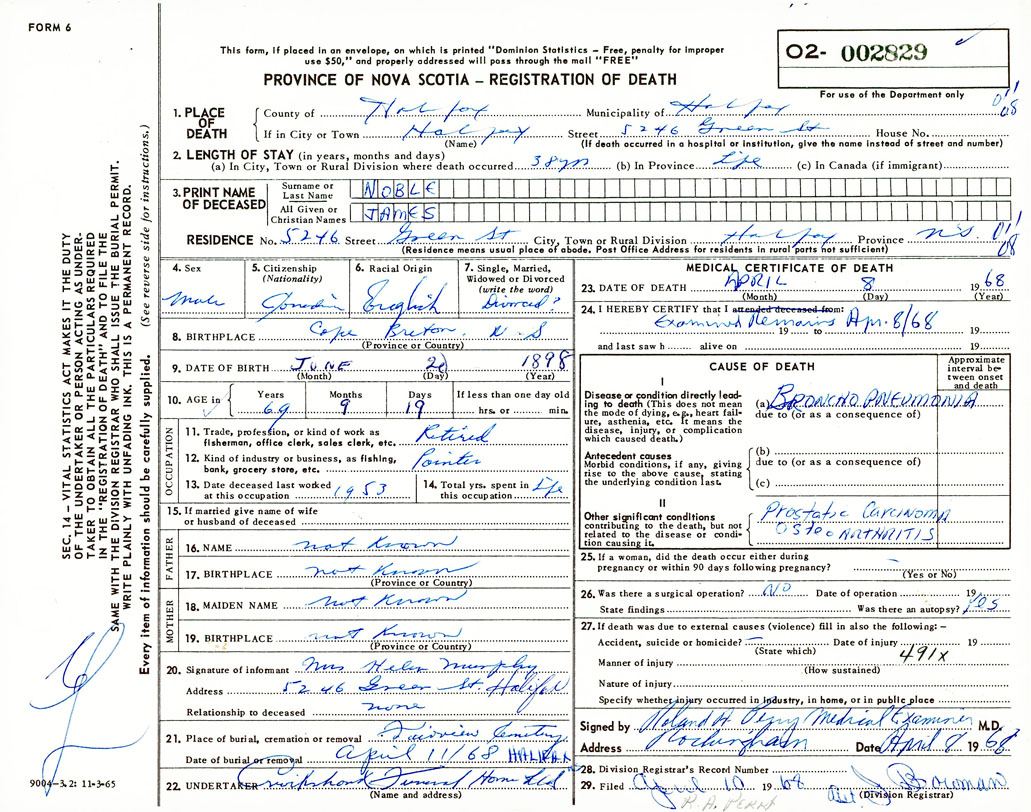 FORM 6
This form, if placed in an envelope, on which is printed "Dominion Statistics – Free, penalty for improper
use $50," and properly addressed will pass through the mail "FREE"
PROVINCE OF NOVA SCOTIA – REGISTRATION OF DEATH
02- 002829
For use of the Department only
SEC. 14 – VITAL STATISTICS ACT MAKES IT THE DUTY
OF THE UNDERTAKER OR PERSON ACTING AS UNDER-
TAKER TO OBTAIN ALL THE PARTICULARS REQUIRED
IN THE "REGISTRATION OF DEATH" AND TO FILE THE
SAME WITH THE DIVISION REGISTRAR WHO SHALL ISSUE THE BURIAL PERMIT.
WRITE PLAINLY WITH UNFADING INK. THIS IS A PERMANENT RECORD.
Every item of information should be carefully supplied. (See reverse side for instructions.)
1. PLACE OF DEATH
County of Halifax Municipality of Halifax 08
If in City or Town Halifax Street 5246 Green St House No.
(Name) (If death occurred in a hospital or institution, give the name instead of street and number)
2. LENGTH OF STAY (in years, months and days)
(a) In City, Town or Rural Division where death occurred 38 yrs (b) In Province Life (c) In Canada (if immigrant)
3. PRINT NAME OF DECEASED
Surname or Last Name NOBLE
All Given or Christian Names JAMES
RESIDENCE No. 5246 Street Green St City, Town or Rural Division Halifax Province N.S. 08
(Residence means usual place of abode. Post Office Address for residents in rural parts not sufficient)
4. Sex Male
5. Citizenship (Nationality) Canadian
6. Racial Origin English
7. Single, Married, Widowed or Divorced (write the word) Divorced?
8. BIRTHPLACE Cape Breton N.S
(Province or Country)
9. DATE OF BIRTH JUNE 20 1898
(Month) (Day) (Year)
10. AGE in Years 69 Months 9 Days 19 If less than one day old hrs. or min.
OCCUPATION
11. Trade, profession, or kind of work as
fisherman, office clerk, sales clerk, etc. Retired
12. Kind of industry or business, as fishing,
bank, grocery store, etc. Painter
13. Date deceased last worked
at this occupation 1953
14. Total yrs. spent in
this occupation Life
15. If married give name of wife
or husband of deceased
FATHER
16. NAME not Known
17. BIRTHPLACE not Known
(Province or Country)
MOTHER
18. MAIDEN NAME not Known
19. BIRTHPLACE not Known
(Province or Country)
20. Signature of informant Mrs Helen Murphy
Address 5246 Green St. Halifax
Relationship to deceased none
21. Place of burial, cremation or removal Fairview Cemetery
Date of burial or removal April 11/68 HALIFAX
22. UNDERTAKER Funeral Home Ltd
(Name and address)
9004–3.2: 11-3-65
MEDICAL CERTIFICATE OF DEATH
23. DATE OF DEATH APRIL 8 1968
(Month) (Day) (Year)
24. I HEREBY CERTIFY that I attended deceased from:
Examined Remains Apr. 8/68
19 to 19
and last saw h alive on 19
CAUSE OF DEATH
Approximate interval be- tween onset and death
I
Disease or condition directly lead-
ing to death (This does not mean
the mode of dying, e.g., heart fail-
ure, asthenia, etc. It means the
disease, injury, or complication
which caused death.)
(a) BRONCHO PNEUMONIA
due to (or as a consequence of)
Antecedent causes
Morbid conditions, if any, giving
rise to the above cause, stating
the underlying condition last.
(b)
due to (or as a consequence of)
(c)
II
Other significant conditions
contributing to the death, but not
related to the disease or condi-
tion causing it.
Prostatic Carcinoma
OSTEOARTHRITIS
25. If a woman, did the death occur either during
pregnancy or within 90 days following pregnancy? –
(Yes or No)
26. Was there a surgical operation? NO Date of operation 19
State findings Was there an autopsy? Yes
27. If death was due to external causes (violence) fill in also the following: –
Accident, suicide or homicide? – Date of injury 19
(State which) 491x
Manner of injury
(How sustained)
Nature of injury
Specify whether injury occurred in industry, in home, or in public place
Signed by Roland A. Perry Medical Examiner M.D.
Address Rockingham Date April 8 1968
28. Division Registrar's Record Number
29. Filed April 10 1968 J Bowman
(Division Registrar)
R A PERRY